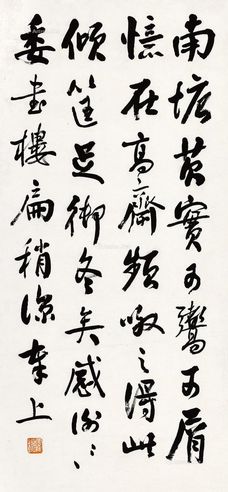 南塘芡實可鬻可屑
憶在高齋頻啖之得此
傾筐足御冬矣感謝〻
委書樓扁稍涼奉上